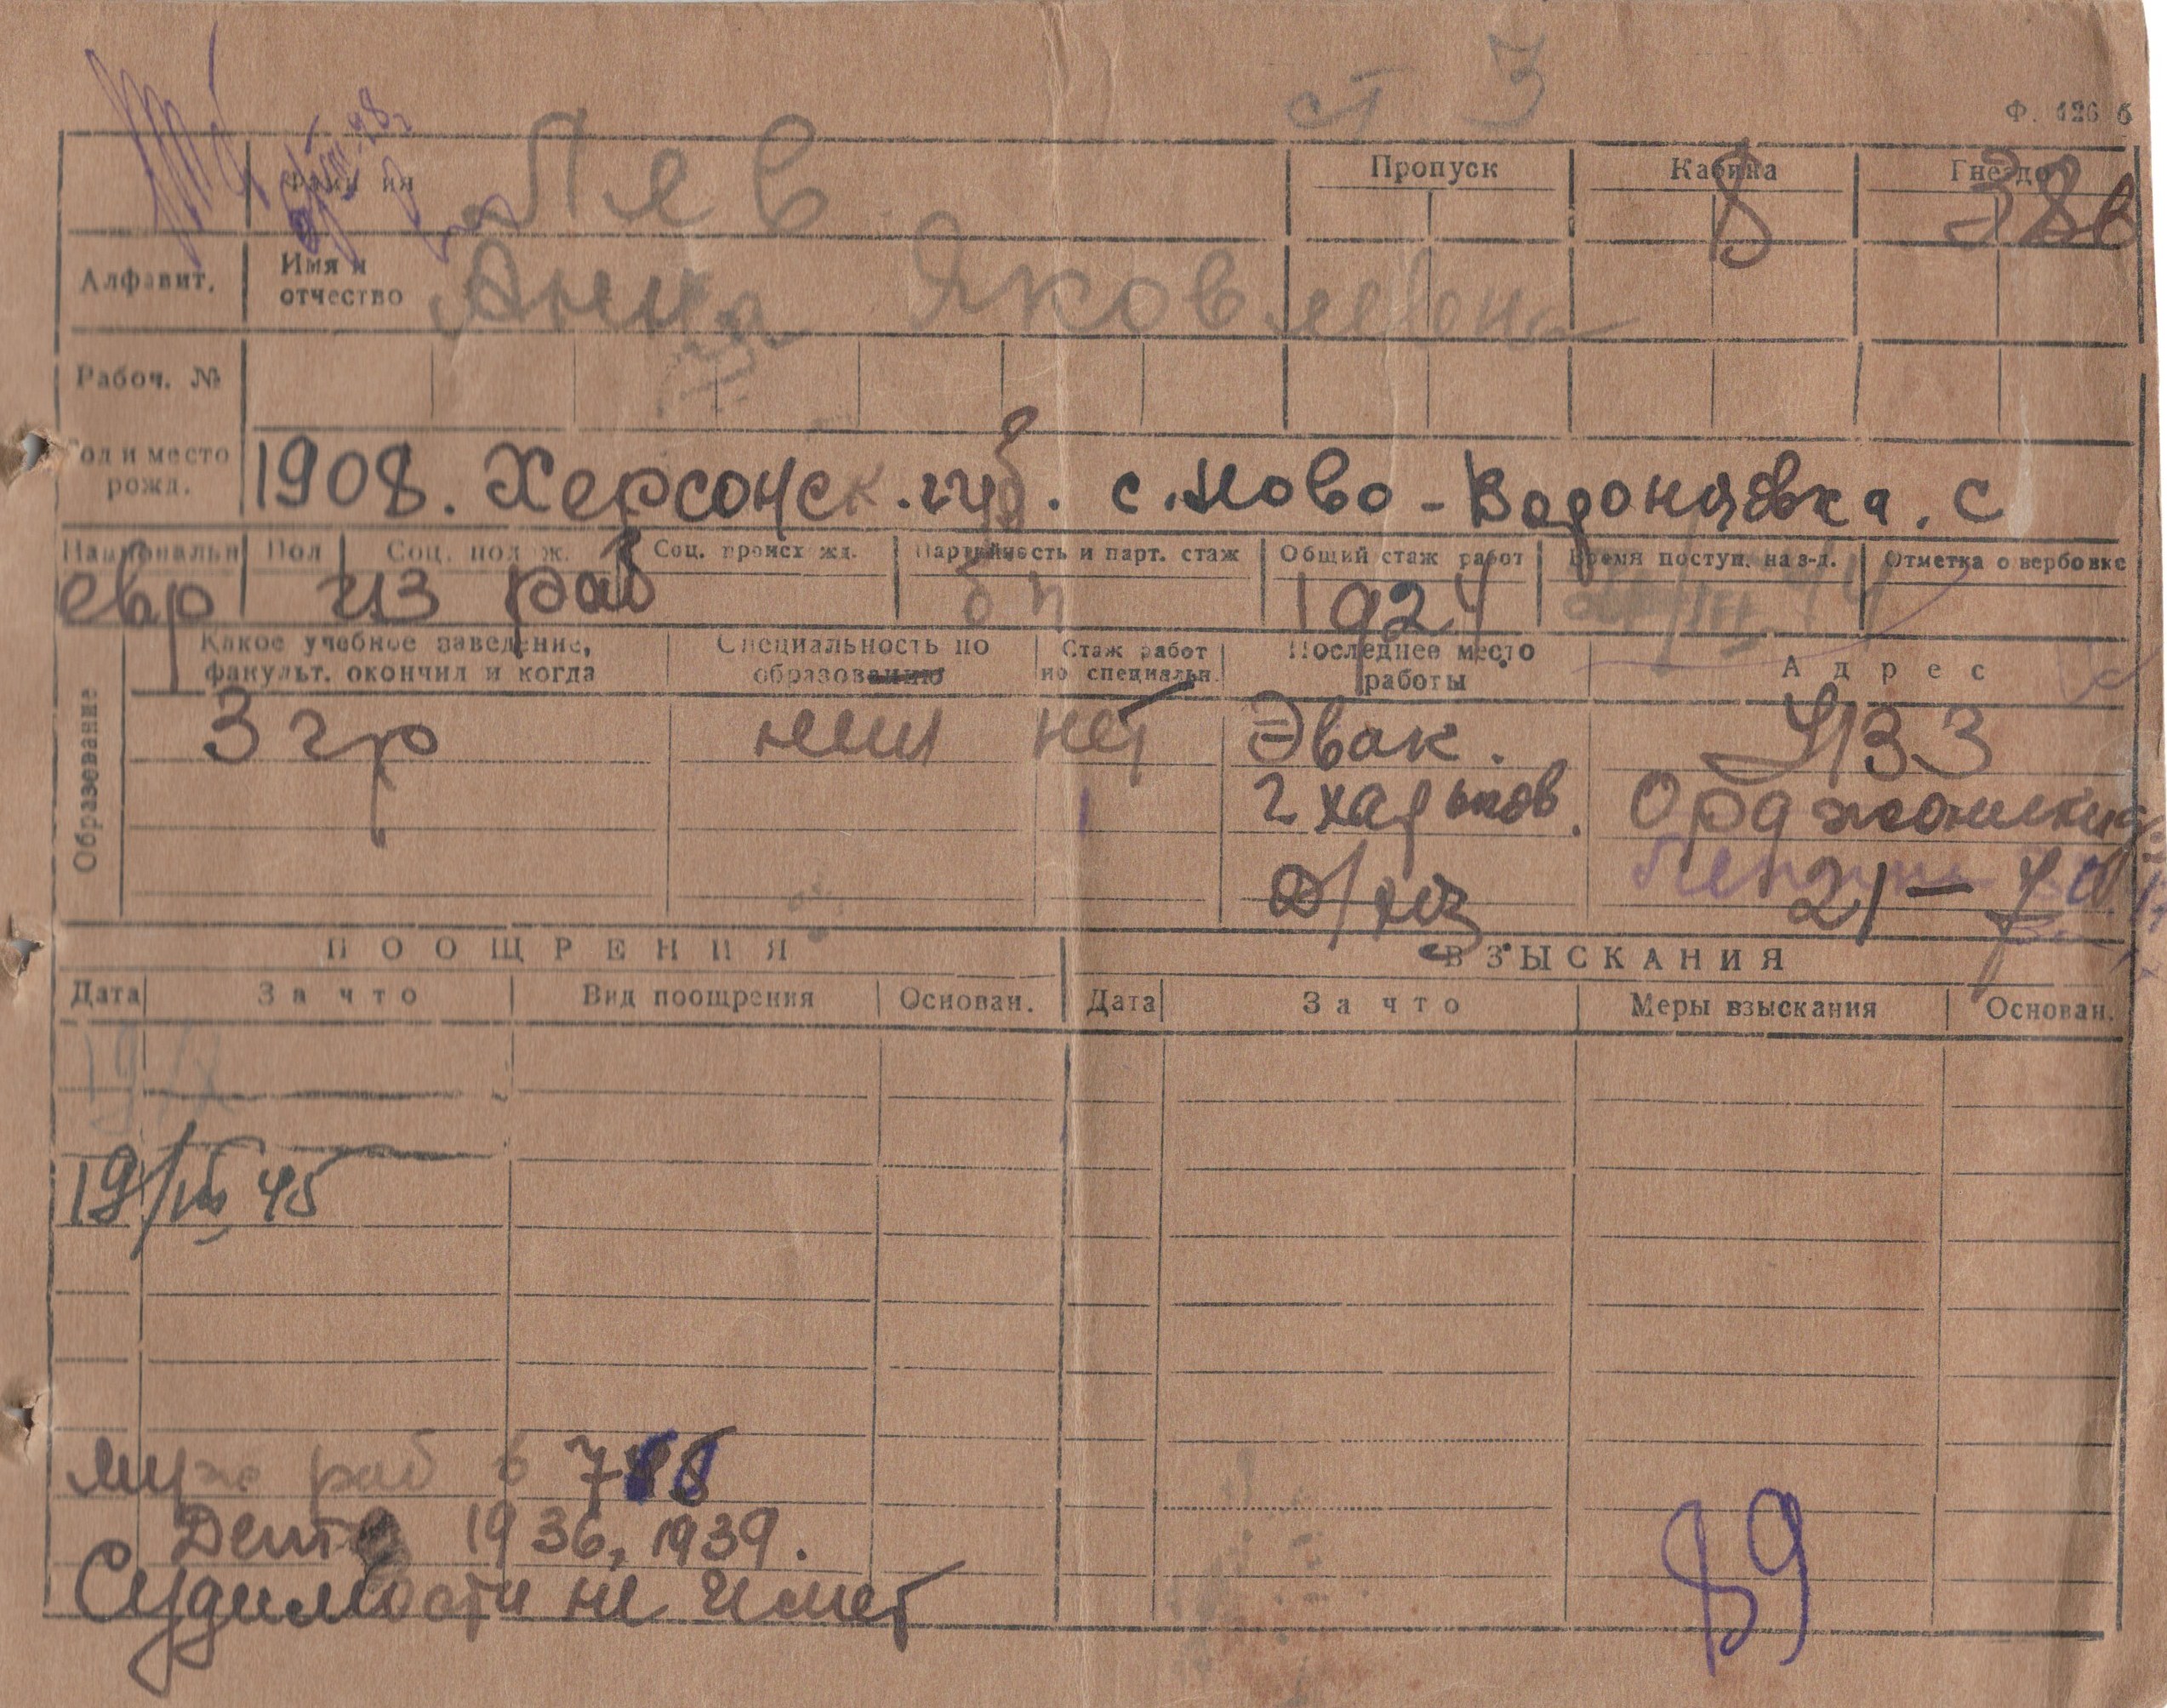 ст 3
Ф. 126 б
Фамилия Ляв Пропуск Кабина 8 Гнездо 388
Алфавит. Имя и отчество Анна Яковлевна
Рабоч. №
Год и место рожд. 1908. Херсонск. губ. с. Ново-Воронцовка. с
Национальн Пол Соц. полож. Соц. происхожд. Партийность и парт. стаж Общий стаж работ Время поступ. на з-д. Отметка о вербовке
евр из раб бп 1924 44
Образование
Какое учебное заведение, факульт. окончил и когда Специальность по образованию Стаж работ по специальн. Последнее место работы Адрес
3 гр нет Эвак.
г Харьков. Орджоникид
21 –
ПООЩРЕНИЯ ВЗЫСКАНИЯ
Дата За что Вид поощрения Основан. Дата За что Меры взыскания Основан.
19/VII 45
муж раб в
Дети 1936, 1939.
Судимости не имеет
89